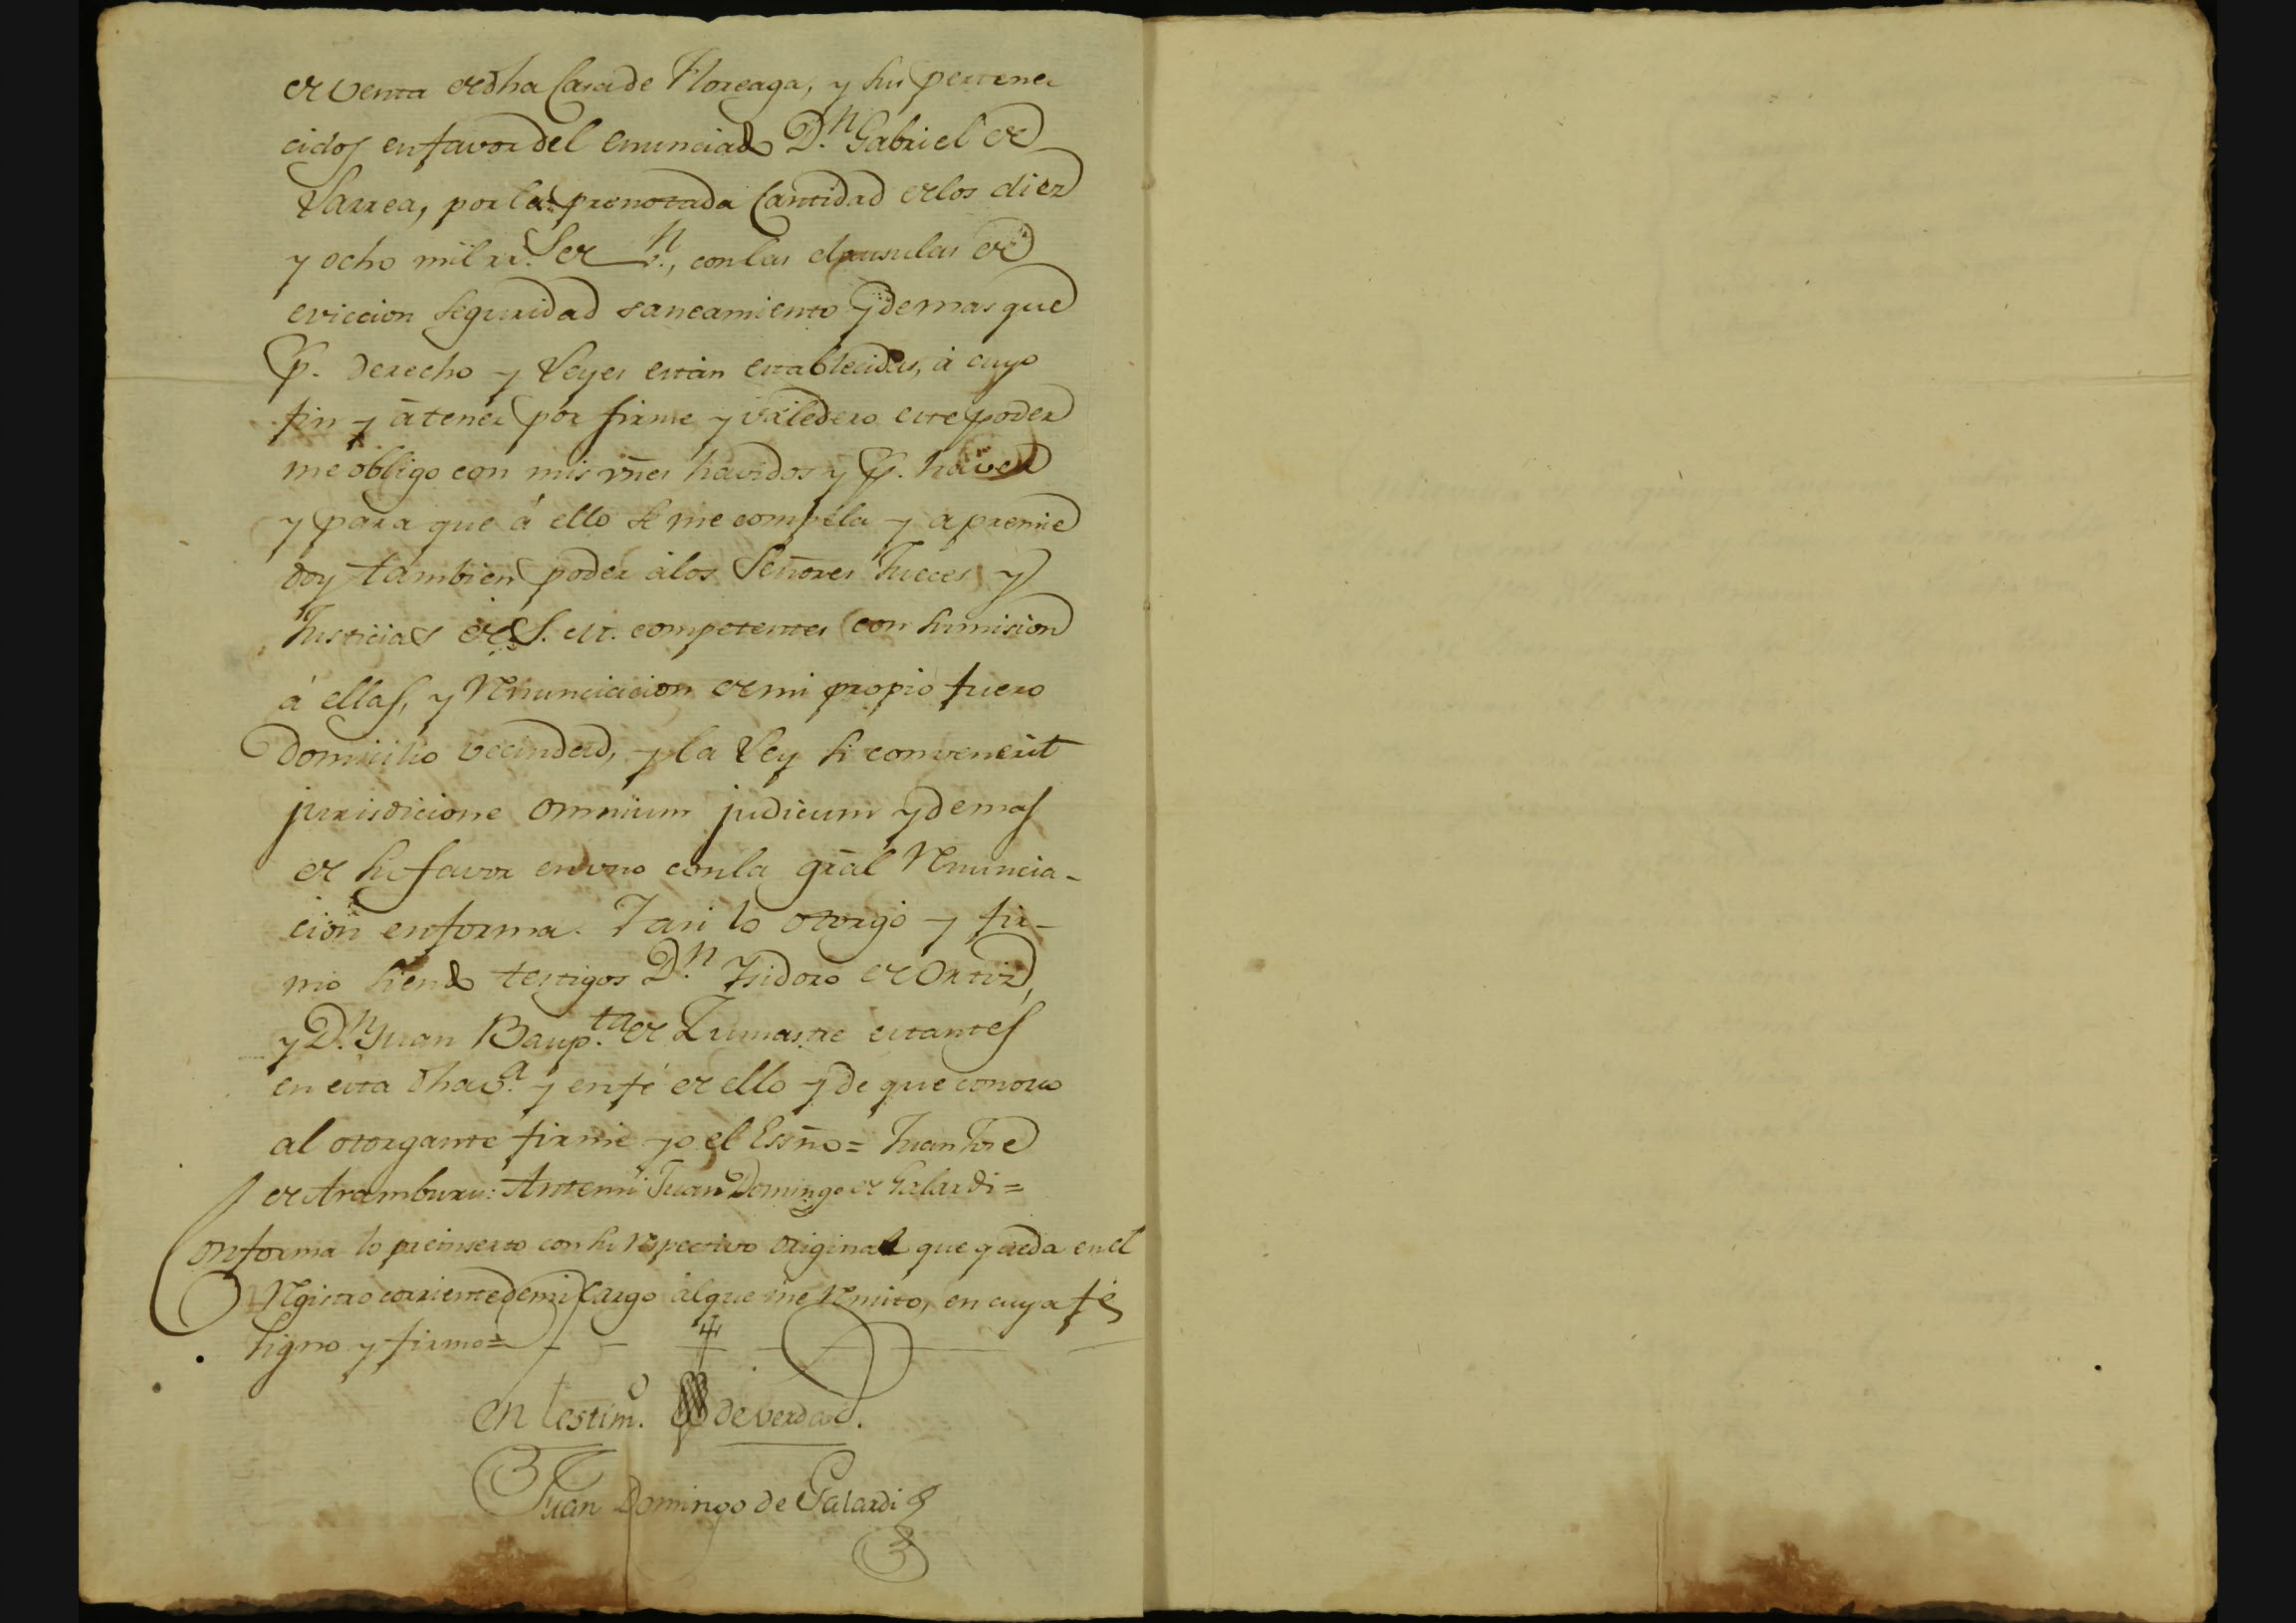 de venta de dha Casa de Floreaga, y sus pertene-
cidos en favor del enunciado D.n Gabriel de
Larrea, por la prenotada Cantidad de los diez
y ocho mil rr.s de v.n, con las clausulas de
eviccion seguridad saneamiento y demas que
p.r derecho y Leyes están establecidas, á cuyo
fin y á tener por firme y valedero este poder
me obligo con mis vñes havidos y p.r haver
y para que á ello se me compela y apremie
doy tambien poder á los Señores Jueces y
Justicias de S. M. competentes con sumision
á ellas, y Renunciacion de mi propio fuero
Domicilio vecindad, y la Ley si convenerit
jurisdicione omnium judicum y demas
de su favor en uno con la gral Renuncia-
ción en forma. Y asi lo otorgó y fir-
mó siendo testigos D.n Ysidoro de Ortiz,
y D.n Juan Baup.ta de Zumastre estantes
en esta dha v.a y en fé de ello y de que conozco
al otorgante firmé yo el Essño = Juan José
de Aramburu: Antemi Juan Domingo de Galardi =
Conforma lo preinserto con su respectivo original que queda en el
Registro corriente de mi cargo al que me remito, en cuya fé
signo y firmo =
en testim.o de verdad.
Juan Domingo de Galardi